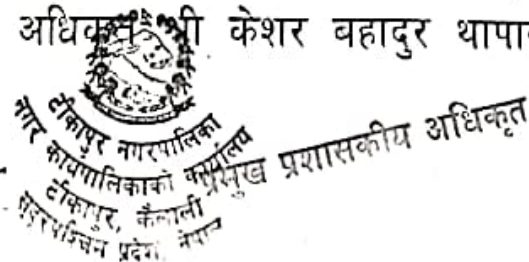 अधिकृत श्री केशर बहादुर थापा
टीकापुर नगरपालिका
नगर कार्यपालिकाको कार्यालय
टीकापुर, कैलाली
सुदूरपश्चिम प्रदेश, नेपाल
प्रमुख प्रशासकीय अधिकृत